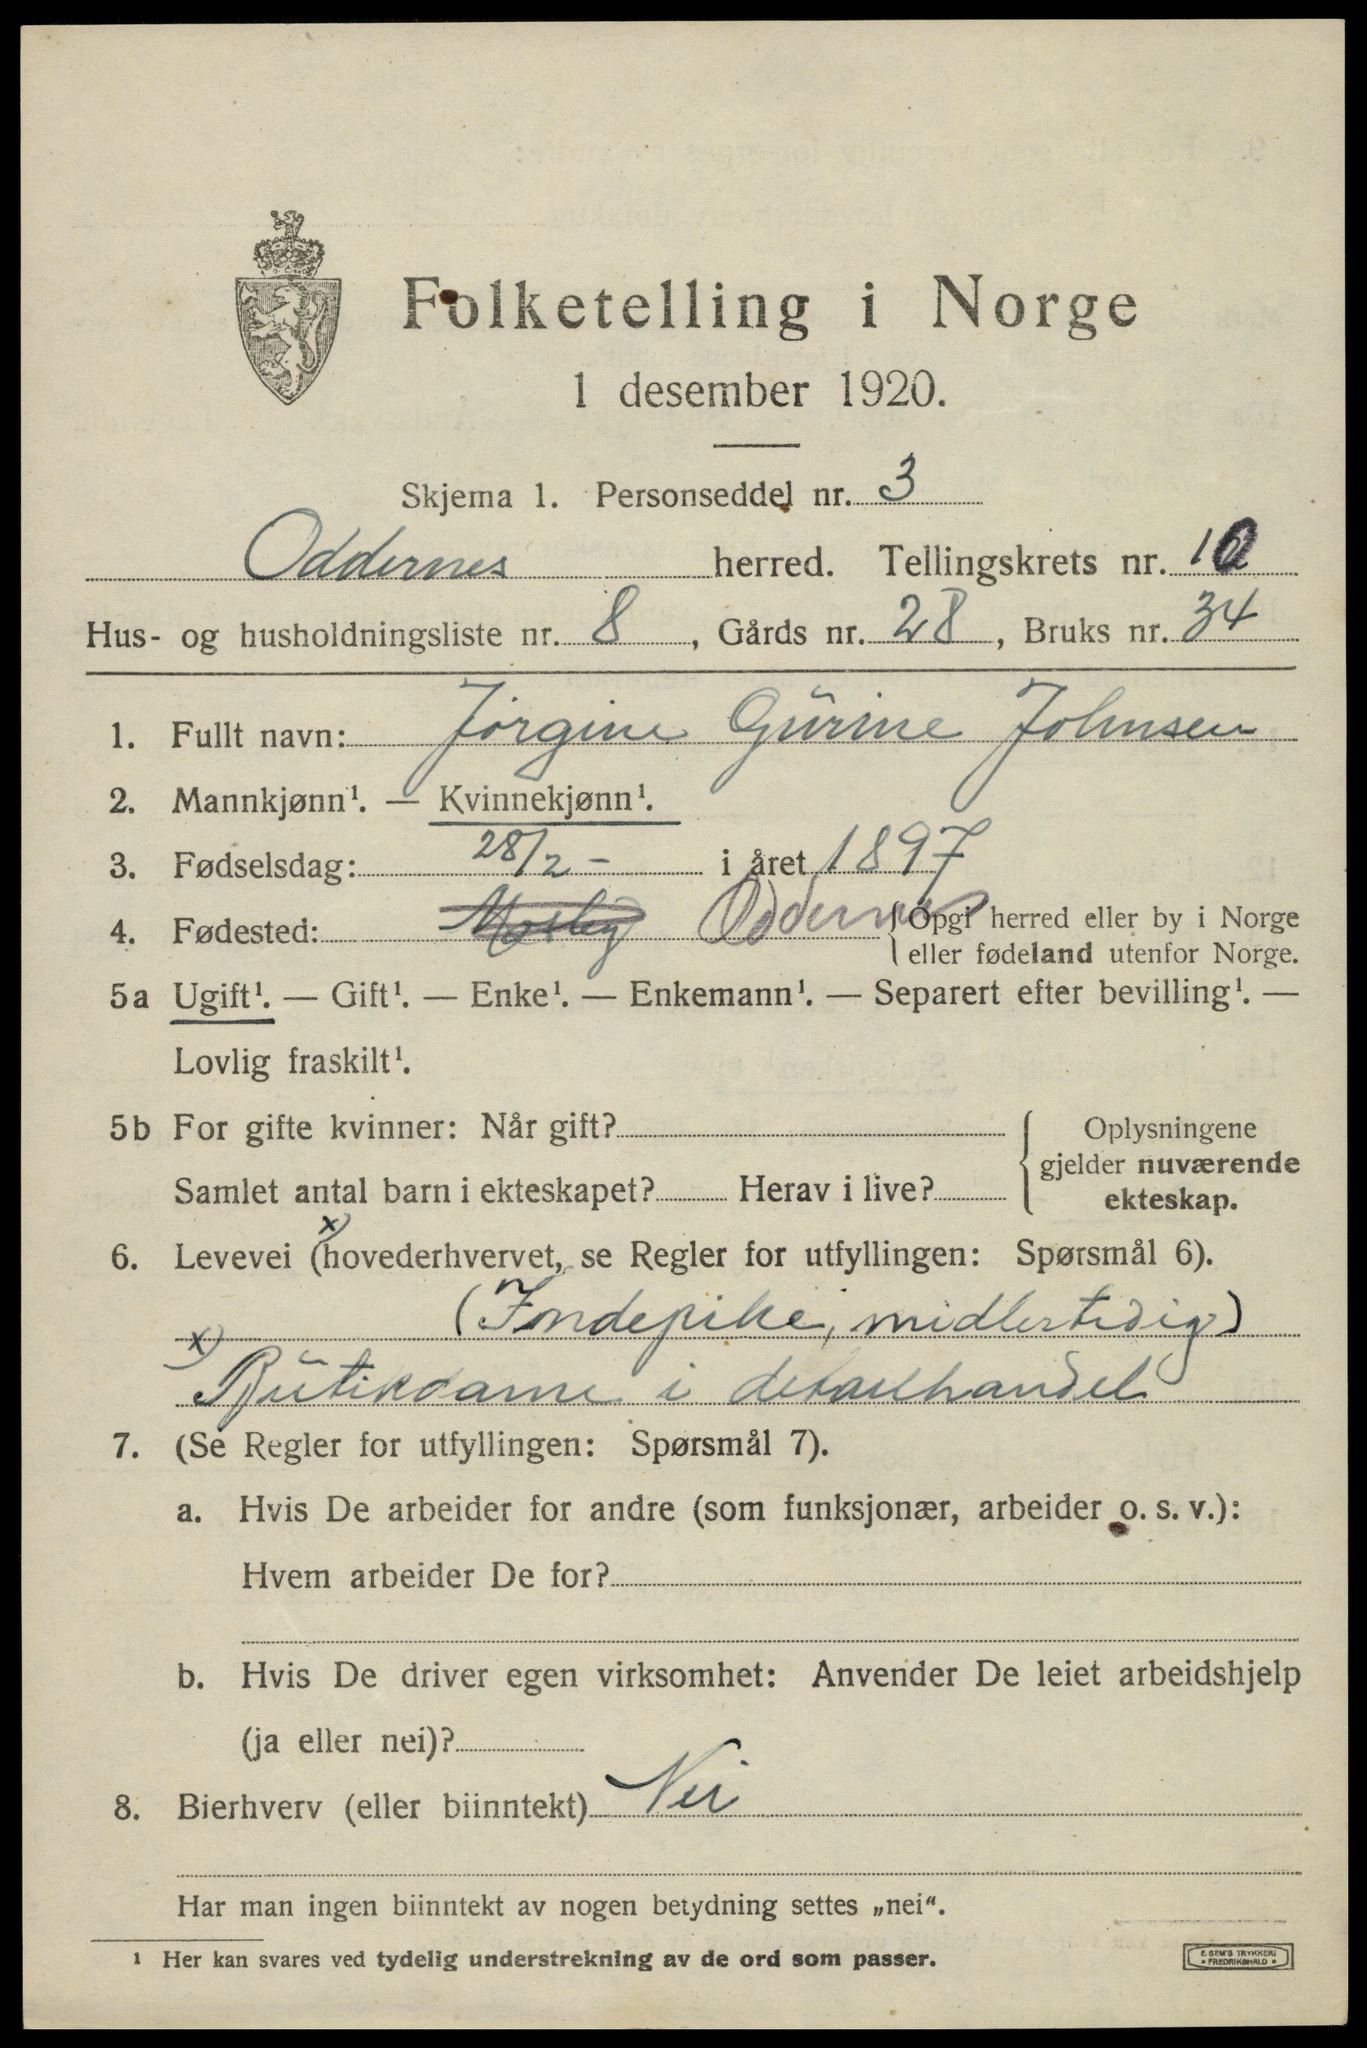 Folketelling i Norge
1 desember 1920.
Skjema 1. Personseddel nr. 3
Oddernes herred. Tellingskrets nr. 10
Hus- og husholdningsliste nr. 8, Gårds nr. 28, Bruks nr. 34
1. Fullt navn: Jørgine Gurine Johnsen
2. Mannkjønn¹. — Kvinnekjønn¹.
3. Fødselsdag: 28/2 - i året 1897
4. Fødested: Mosby Oddernes { Opgi herred eller by i Norge
eller fødeland utenfor Norge.
5a Ugift¹. — Gift¹. — Enke¹. — Enkemann¹. — Separert efter bevilling¹. —
Lovlig fraskilt¹.
5b For gifte kvinner: Når gift?
Samlet antal barn i ekteskapet? Herav i live?
{ Oplysningene
gjelder nuværende
ekteskap.
6. Levevei (hovederhvervet, se Regler for utfyllingen: Spørsmål 6).
x)
(Indepike, midlertidig)
x) Butikdame i detailhandel
7. (Se Regler for utfyllingen: Spørsmål 7).
a. Hvis De arbeider for andre (som funksjonær, arbeider o. s. v.):
Hvem arbeider De for?
b. Hvis De driver egen virksomhet: Anvender De leiet arbeidshjelp
(ja eller nei)?
8. Bierhverv (eller biinntekt) Nei
Har man ingen biinntekt av nogen betydning settes „nei“.
¹ Her kan svares ved tydelig understrekning av de ord som passer.
E. SEM'S TRYKKERI
• FREDRIKSHALD •